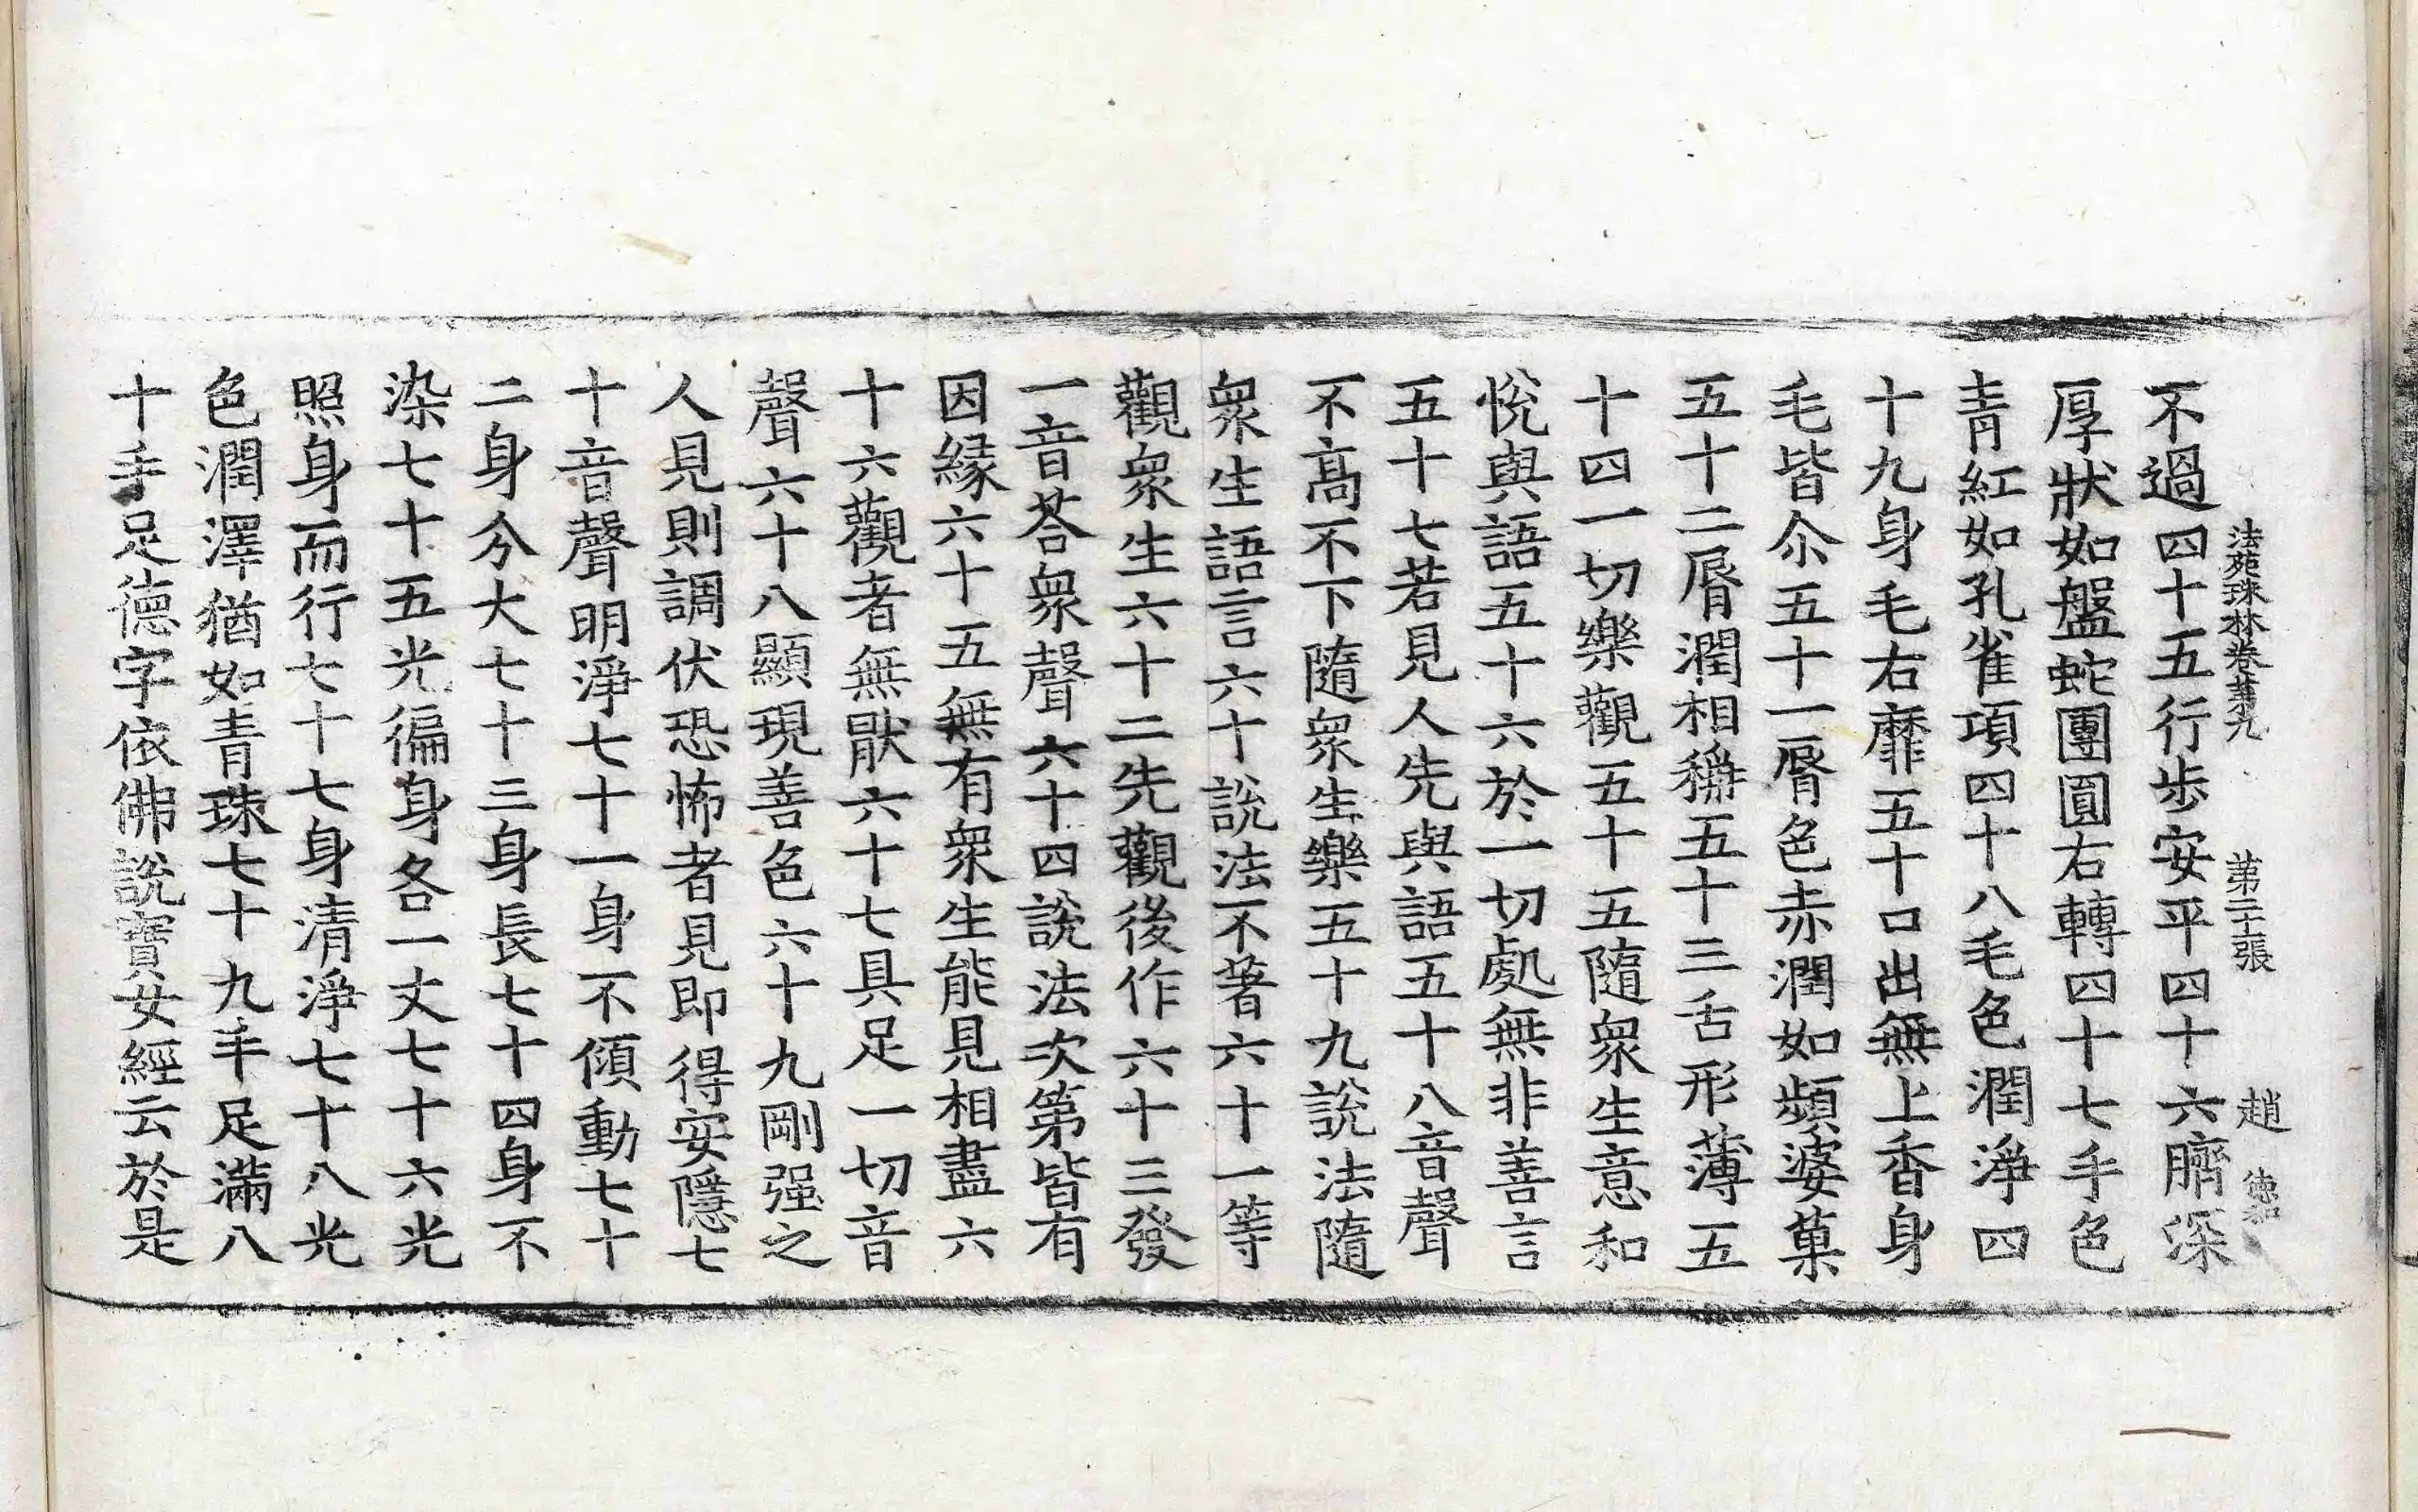 法苑珠林卷第九 第二十張 趙
不過四十五行步安平四十六臍深
厚狀如盤蛇團圓右轉四十七手色
青紅如孔雀項四十八毛色潤淨四
十九身毛右靡五十口出無上香身
毛皆尒五十一脣色赤潤如頻婆菓
五十二脣潤相稱五十三舌形薄五
十四一切樂觀五十五隨衆生意和
悅與語五十六於一切處無非善言
五十七若見人先與語五十八音聲
不高不下隨衆生樂五十九說法隨
衆生語言六十說法不著六十一等
觀衆生六十二先觀後作六十三發
一音荅衆聲六十四說法次第皆有
因緣六十五無有衆生能見相盡六
十六觀者無猒六十七具足一切音
聲六十八顯現善色六十九剛强之
人見則調伏恐怖者見即得安隱七
十音聲明淨七十一身不傾動七十
二身分大七十三身長七十四身不
染七十五光徧身各一丈七十六光
照身而行七十七身清淨七十八光
色潤澤猶如青珠七十九手足滿八
十手足德字依佛說寶女經云於是